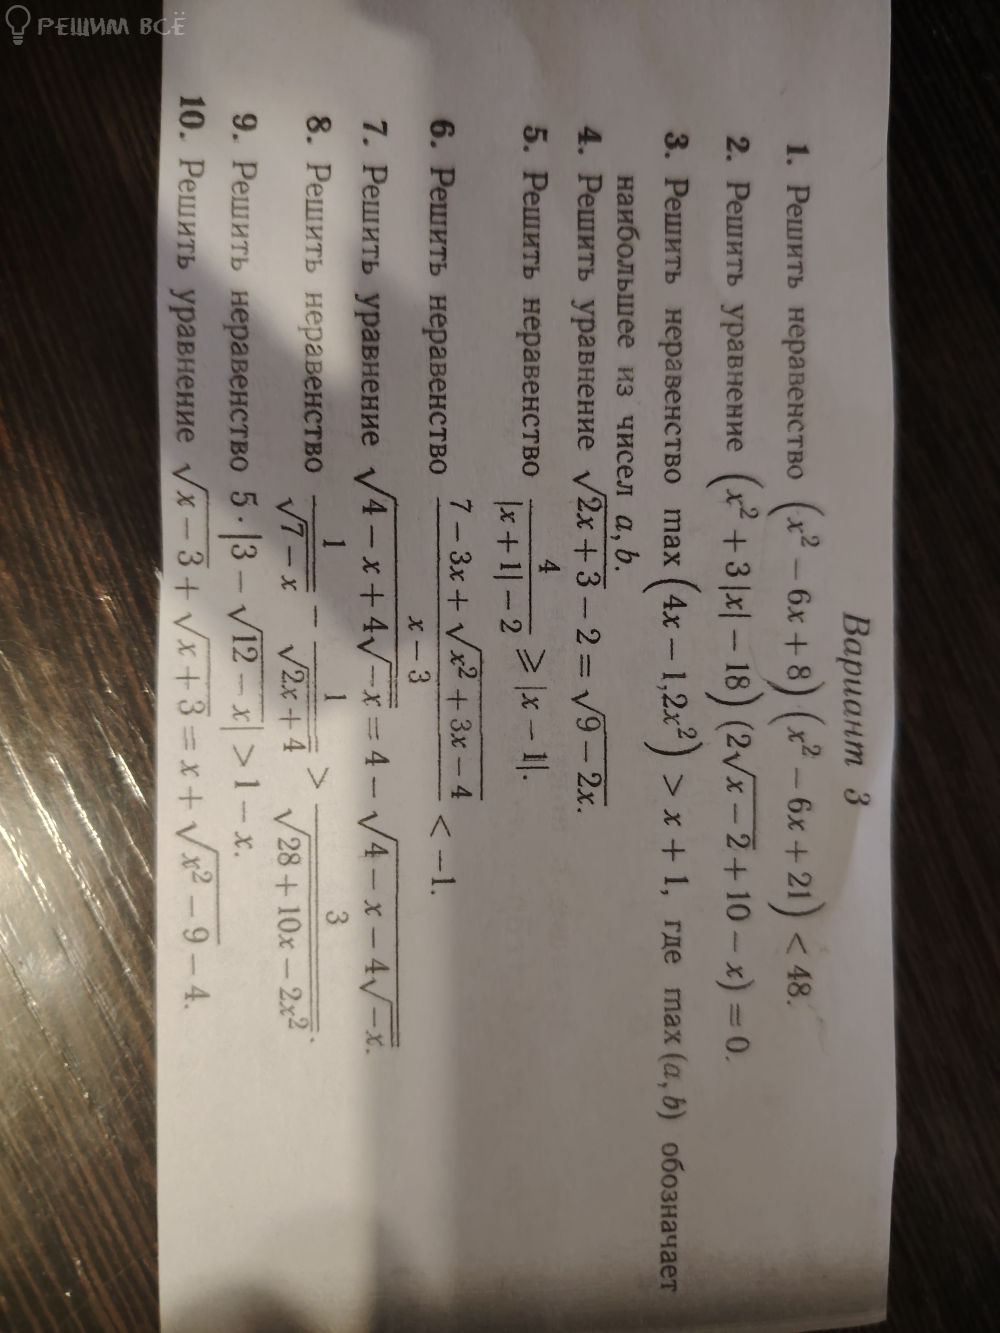 РЕШИМ ВСЁ
Вариант 3
1. Решить неравенство (x² − 6x + 8)(x² − 6x + 21) < 48.
2. Решить уравнение (x² + 3|x| − 18)(2√(x − 2) + 10 − x) = 0.
3. Решить неравенство max(4x − 1, 2x²) > x + 1, где max(a, b) обозначает
наибольшее из чисел a, b.
4. Решить уравнение √(2x + 3) − 2 = √(9 − 2x).
5. Решить неравенство 4/(|x + 1| − 2) ⩾ |x − 1|.
6. Решить неравенство (7 − 3x + √(x² + 3x − 4))/(x − 3) < −1.
7. Решить уравнение √(4 − x + 4√(−x)) = 4 − √(4 − x − 4√(−x)).
8. Решить неравенство 1/√(7 − x) − 1/√(2x + 4) > 3/√(28 + 10x − 2x²).
9. Решить неравенство 5 · |3 − √(12 − x)| > 1 − x.
10. Решить уравнение √(x − 3) + √(x + 3) = x + √(x² − 9) − 4.